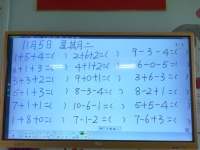 11月5日 星期二
1+5+4=( ) 2+6+2=( ) 9-3-4=(
6+1+3=( ) 4+1+2=( ) 6-0-5=(
3+3+2=( ) 9+0+1=( ) 3+6-3=(
5+1+3=( ) 8-3-4=( ) 8-2+1=(
7+1+1=( ) 10-6-1=( ) 5+5-4=(
1+8+0=( ) 7-1-2=( ) 7-6+3=(